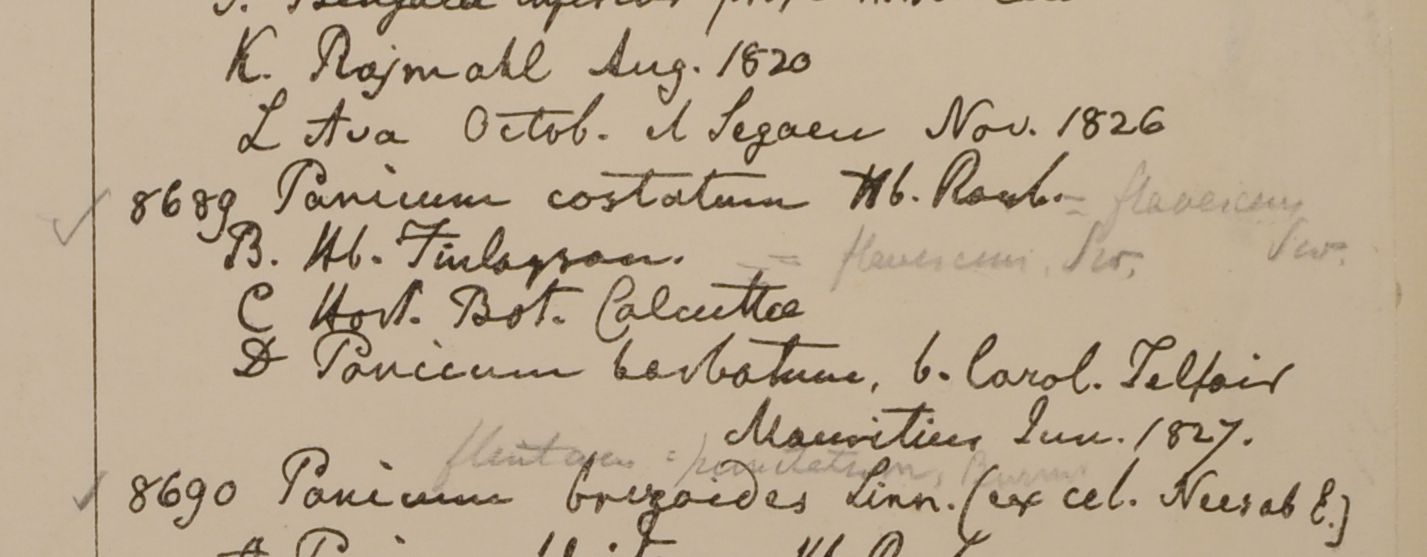 K. Rajmahl Aug. 1820
L Ava Octob. et Segaen Nov. 1826
8689 Panicum costatum Hb. Roxb. = flavescens Sw.
B. Hb. Finlayson. = flavescens, Sw,
C Hort. Bot. Calcutta
D Panicum barbatum, b. Carol. Telfair
Mauritius Jun. 1827.
= punctatum, Burm
8690 Panicum brizoides Linn. (ex cel. Nees ab E.)
Panicum Hb.